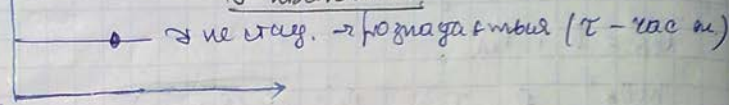 не стац. → розпадається (τ - час ж)